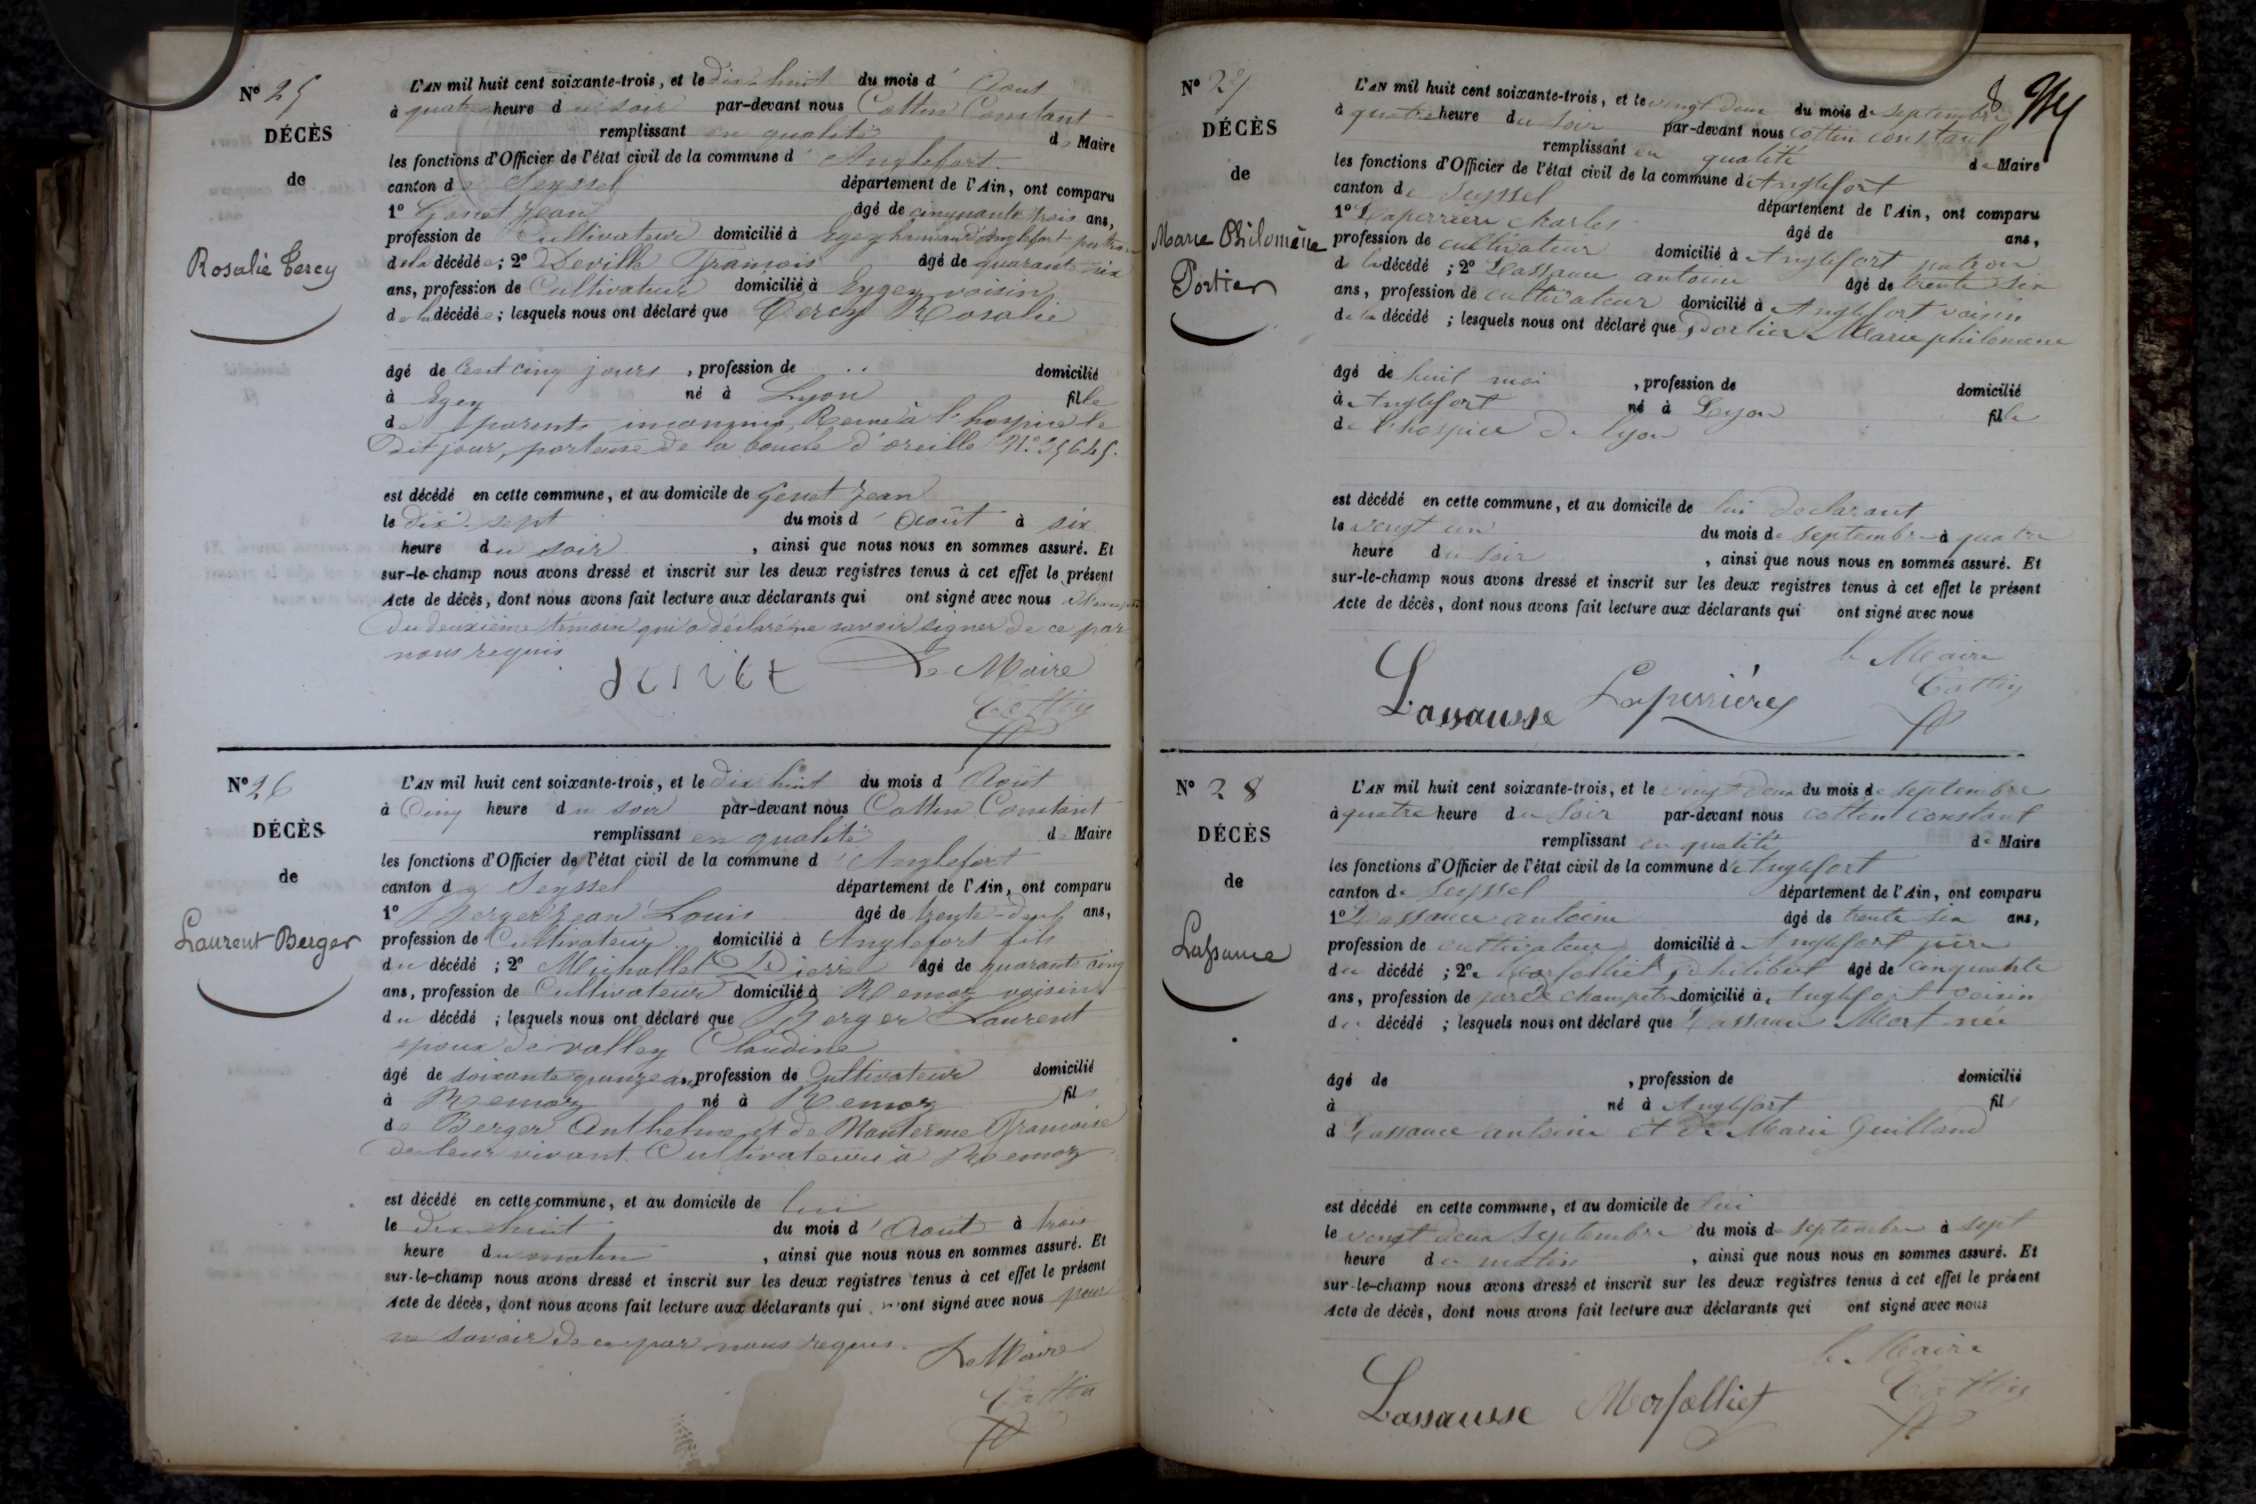 N° 25
DÉCÈS
de
Rosalie Cercy
L'AN mil huit cent soixante-trois, et le dix huit du mois d'Aout
à quatre heure du soir par-devant nous Cottin Constant
remplissant en qualité de Maire
les fonctions d'Officier de l'état civil de la commune d'Anglefort
canton de Seyssel département de l'Ain, ont comparu
1° Genet Jean âgé de cinquante trois ans,
profession de Cultivateur domicilié à Egey hameau d'Anglefort
de la décédée; 2° Deville François âgé de quarante six
ans, profession de Cultivateur domicilié à Eygey voisin
de la décédée; lesquels nous ont déclaré que Cercy Rosalie
âgé de cent cinq jours, profession de .. domicilié
à Egey né à Lyon fille
de parents inconnus, Remise à l'hospice le
Dit jour, porteuse de la boucle d'oreille N°. 35645.
est décédé en cette commune, et au domicile de Genet Jean
le dix-sept du mois d'Août à six
heure du soir, ainsi que nous nous en sommes assuré. Et
sur-le-champ nous avons dressé et inscrit sur les deux registres tenus à cet effet le présent
Acte de décès, dont nous avons fait lecture aux déclarants qui ont signé avec nous
du deuxième témoin qui a déclaré ne savoir signer de ce par
nous requis
Le Maire
Cottin
N° 26
DÉCÈS
de
Laurent Berger
L'AN mil huit cent soixante-trois, et le dix huit du mois d'Août
à Cinq heure du soir par-devant nous Cottin Constant
remplissant en qualité de Maire
les fonctions d'Officier de l'état civil de la commune d'Anglefort
canton de Seyssel département de l'Ain, ont comparu
1° Berger Jean Louis âgé de trente-deux ans,
profession de Cultivateur domicilié à Anglefort fils
du décédé; 2° Michallet Pierre âgé de quarante cinq
ans, profession de Cultivateur domicilié à Remoz voisin
du décédé; lesquels nous ont déclaré que Berger Laurent
epoux de valley Claudine
âgé de soixante quinze ans, profession de Cultivateur domicilié
à Remoz né à Remoz fils
de Berger Anthelme et de Monterme Françoise
de leur vivant Cultivateurs à Remoz
est décédé en cette commune, et au domicile de lui
le dix huit du mois d'Aout à trois
heure du matin, ainsi que nous nous en sommes assuré. Et
sur-le-champ nous avons dressé et inscrit sur les deux registres tenus à cet effet le présent
Acte de décès, dont nous avons fait lecture aux déclarants qui n'ont signé avec nous pour
ne savoir de ce par nous requis.
Le Maire
Cottin
8
N° 27
DÉCÈS
de
Marie Philomène
Portier
L'AN mil huit cent soixante-trois, et le vingt deux du mois de septembre
à quatre heure du soir par-devant nous Cottin constant
remplissant en qualité de Maire
les fonctions d'Officier de l'état civil de la commune d'Anglefort
canton de Seyssel département de l'Ain, ont comparu
1° Laperrière Charles âgé de ans,
profession de cultivateur domicilié à Anglefort patron
de la décédé; 2° Lassause antoine âgé de trente six
ans, profession de cultivateur domicilié à Anglefort voisin
de la décédé; lesquels nous ont déclaré que Portier Marie philomene
âgé de huit moi, profession de domicilié
à Anglefort né à Lyon fille
de l'hospice de lyon
est décédé en cette commune, et au domicile de lui declarant
le vingt un du mois de septembre à quatre
heure du soir, ainsi que nous nous en sommes assuré. Et
sur-le-champ nous avons dressé et inscrit sur les deux registres tenus à cet effet le présent
Acte de décès, dont nous avons fait lecture aux déclarants qui ont signé avec nous
le Maire
Lassausse Laperrière Cottin
N° 28
DÉCÈS
de
Lassause
L'AN mil huit cent soixante-trois, et le vingt deux du mois de septembre
à quatre heure du soir par-devant nous cottin constant
remplissant en qualité de Maire
les fonctions d'Officier de l'état civil de la commune d'Anglefort
canton de Seyssel département de l'Ain, ont comparu
1° Lassause antoine âgé de trente six ans,
profession de cultivateur domicilié à Anglefort père
du décédé; 2° Morfelliet Philibert âgé de cinquante
ans, profession de garde champetre domicilié à Anglefort voisin
du décédé; lesquels nous ont déclaré que Lassause Mort née
âgé de, profession de domicilié
à né à Anglefort fils
d Lassause antoine et de Marie Guilland
est décédé en cette commune, et au domicile de lui
le vingt deux septembre du mois de septembre à sept
heure du matin, ainsi que nous nous en sommes assuré. Et
sur-le-champ nous avons dressé et inscrit sur les deux registres tenus à cet effet le présent
Acte de décès, dont nous avons fait lecture aux déclarants qui ont signé avec nous
le Maire
Lassausse Morfelliet Cottin